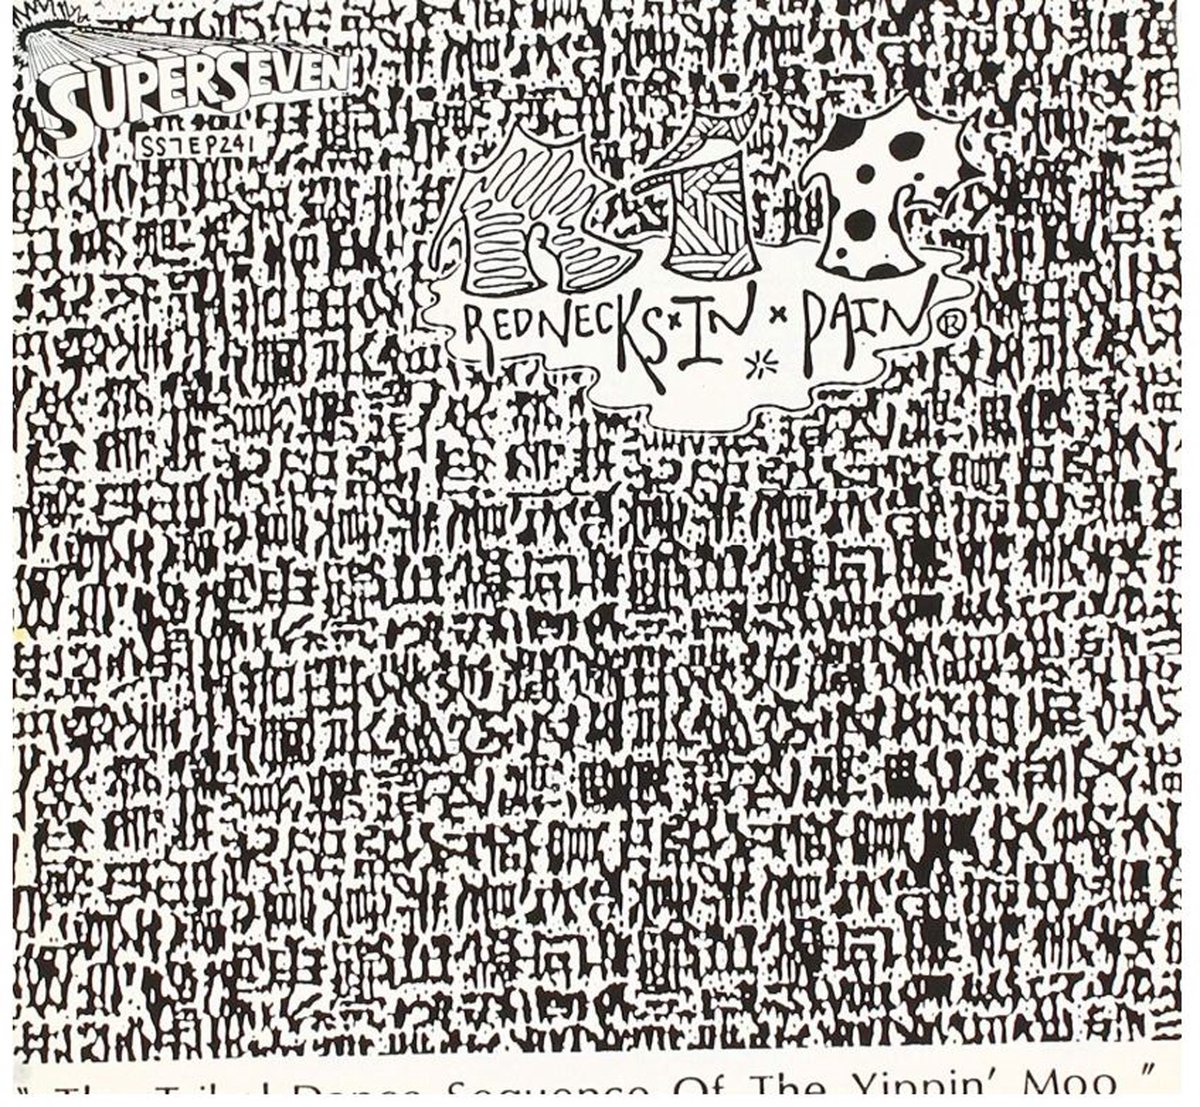 SUPERSEVEN
SS7EP241
RIP
REDNECKS IN PAIN ®
" The Tribal Dance Sequence Of The Yippin' Moo "